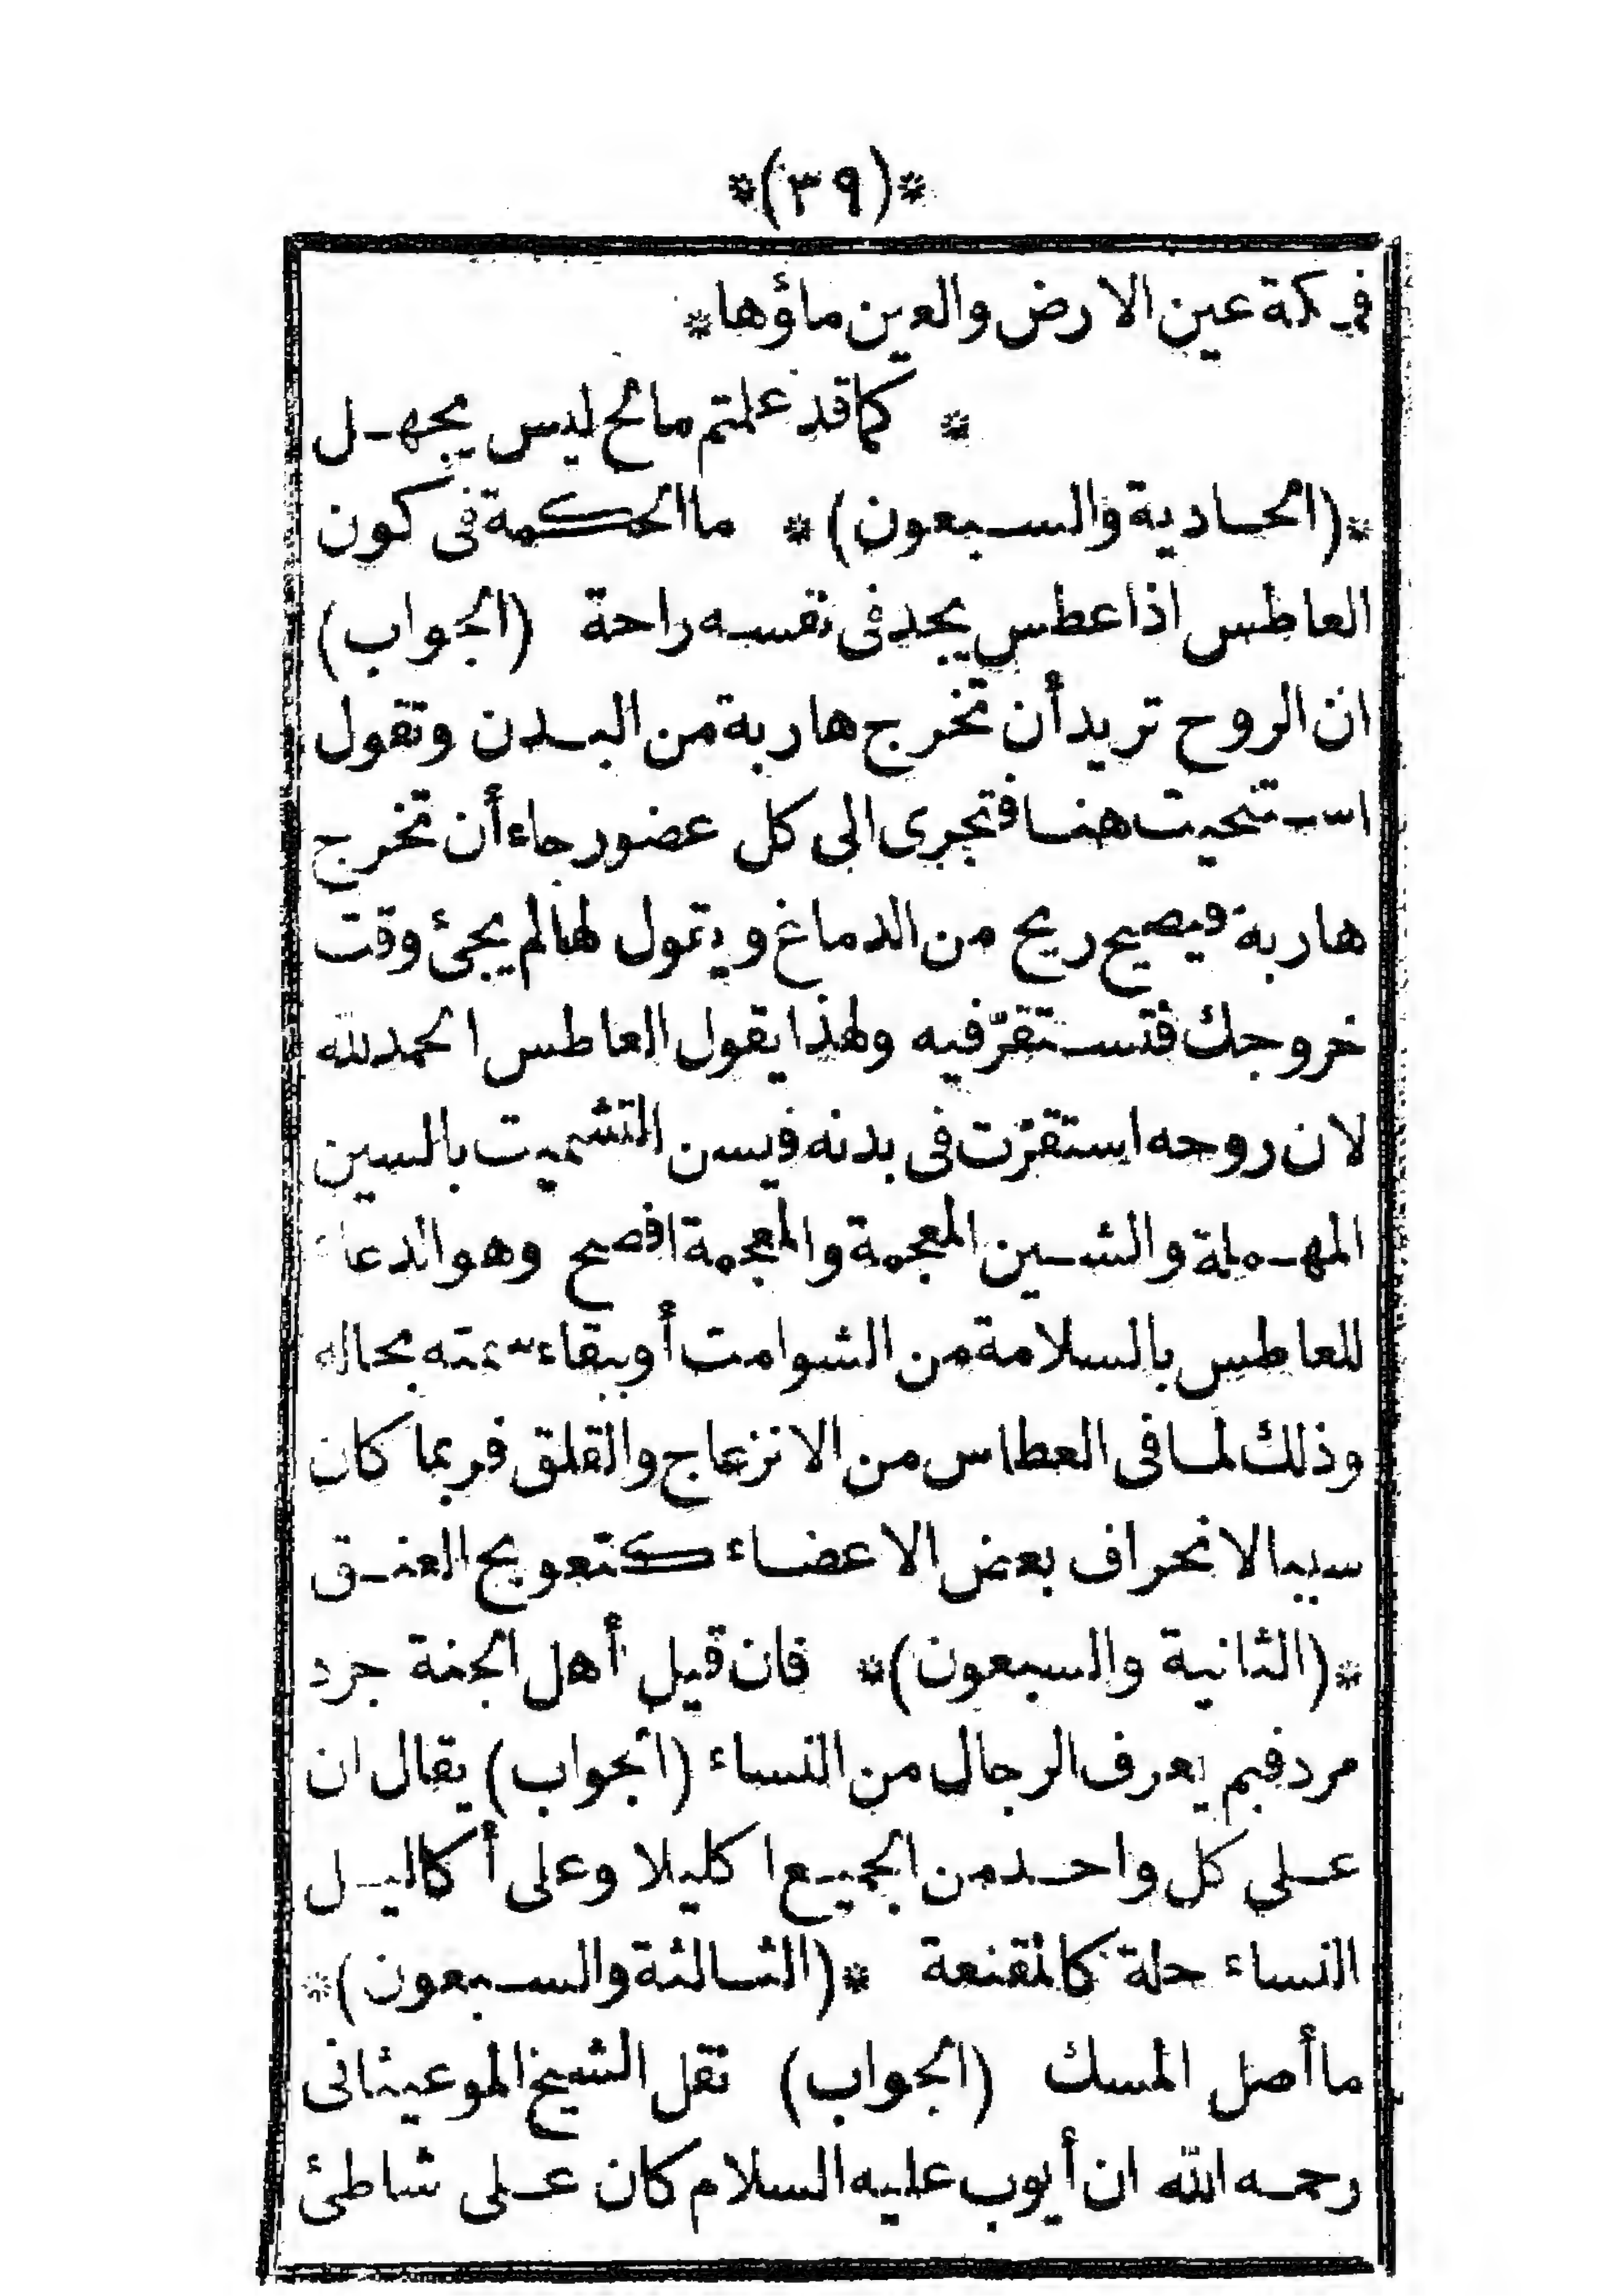 *(٣٩)*
فمكة عين الارض والعين ماؤها*
* كما قد علمتم مالح ليس يجهل
*(الحادية والسبعون)* ما الحكمة فى كون
العاطس اذا عطس يجد فى نفسه راحة (الجواب)
ان الروح تريد أن تخرج هاربة من البدن وتقول
استحيت هنا فتجرى الى كل عضو رجاء أن تخرج
هاربة فيصيح ريح من الدماغ ويقول لها لم يجئ وقت
خروجك فتستقرّ فيه ولهذا يقول العاطس الحمد لله
لان روحه استقرّت فى بدنه فيسن التشميت بالسين
المهملة والشين المعجمة والمعجمة افصح وهو الدعاء
للعاطس بالسلامة من الشوامت أو ببقاء سمته بحاله
وذلك لما فى العطاس من الانزعاج والقلق فربما كان
سببا لانحراف بعض الاعضاء كتعويج العنق
*(الثانية والسبعون)* فان قيل أهل الجنة جرد
مرد فبم يعرف الرجال من النساء (الجواب) يقال ان
على كل واحد من الجميع اكليلا وعلى أكاليل
النساء حلة كالمقنعة *(الثالثة والسبعون)*
ما أصل المسك (الجواب) نقل الشيخ
رحمه الله ان أيوب عليه السلام كان على شاطئ